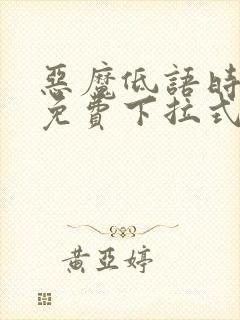 惡魔低語時
免費下拉式
黃亞婷